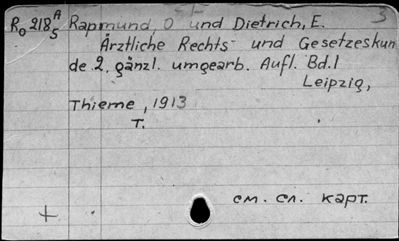 Ro 218 A/5 Rapmund, O und Dietrich, E. 3
Ärztliche Rechts- und Gesetzeskun
de 2. gänzl. umgearb. Aufl. Bd.1
Leipzig,
Thieme, 1913
T.
см. сл. карт.
+